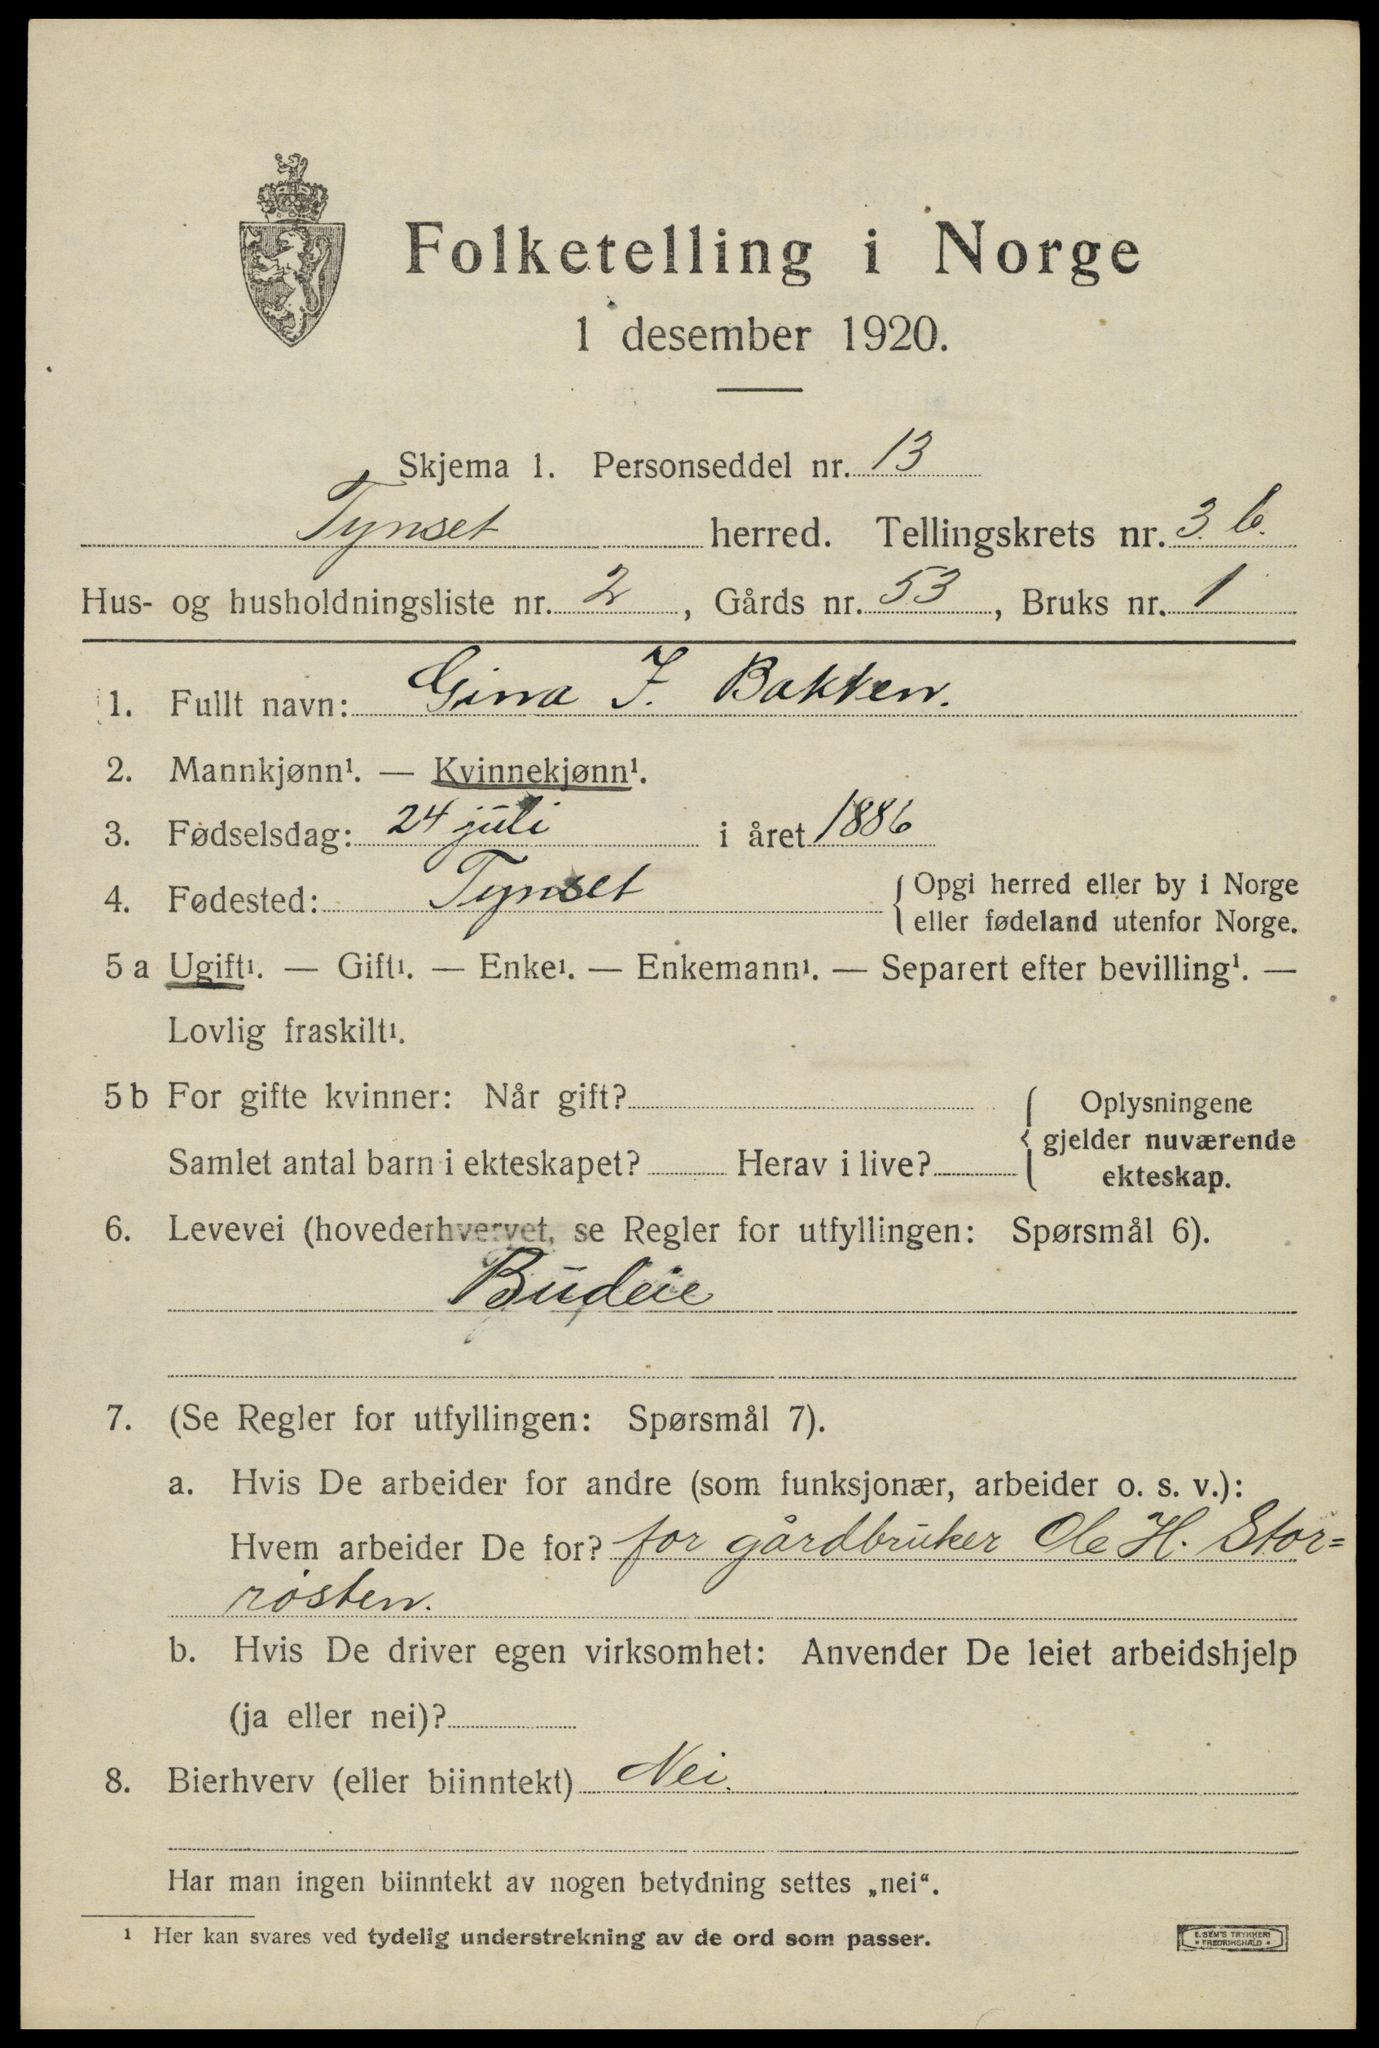 Folketelling i Norge
1 desember 1920.
Skjema 1. Personseddel nr. 13
Tynset herred. Tellingskrets nr. 3. b.
Hus- og husholdningsliste nr. 2, Gårds nr. 53, Bruks nr. 1
1. Fullt navn: Gina J. Bakken.
2. Mannkjønn¹. — Kvinnekjønn¹.
3. Fødselsdag: 24 juli i året 1886
4. Fødested: Tynset { Opgi herred eller by i Norge
eller fødeland utenfor Norge.
5 a Ugift¹. — Gift¹. — Enke¹. — Enkemann¹. — Separert efter bevilling¹. —
Lovlig fraskilt¹.
5 b For gifte kvinner: Når gift? { Oplysningene
gjelder nuværende
Samlet antal barn i ekteskapet? Herav i live?
ekteskap.
6. Levevei (hovederhvervet, se Regler for utfyllingen: Spørsmål 6).
Budeie
7. (Se Regler for utfyllingen: Spørsmål 7).
a. Hvis De arbeider for andre (som funksjonær, arbeider o. s. v.):
Hvem arbeider De for? for gårdbruker Ole H. Stor=
røsten.
b. Hvis De driver egen virksomhet: Anvender De leiet arbeidshjelp
(ja eller nei)?
8. Bierhverv (eller biinntekt) Nei.
Har man ingen biinntekt av nogen betydning settes „nei“.
¹ Her kan svares ved tydelig understrekning av de ord som passer.
E. SEM'S TRYKKERI
• FREDRIKSHALD •